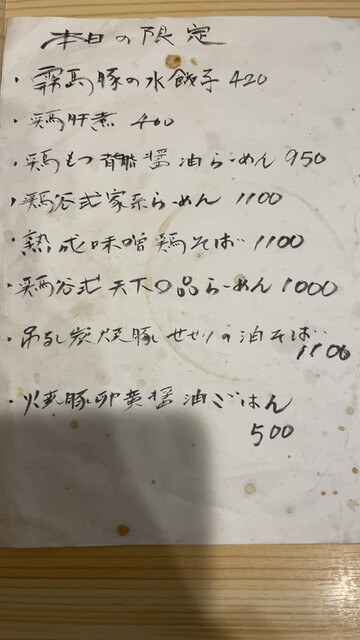 本日の限定
・霧島豚の水餃子 420
・鶏肝煮 400
・鶏もつ背脂醤油らーめん 950
・鶏谷式家系らーめん 1100
・熟成味噌鶏そば 1100
・鶏谷式天下〇品らーめん 1000
・吊るし炭焼豚せせりの油そば
1100
・焼豚卵黄醤油ごはん
500